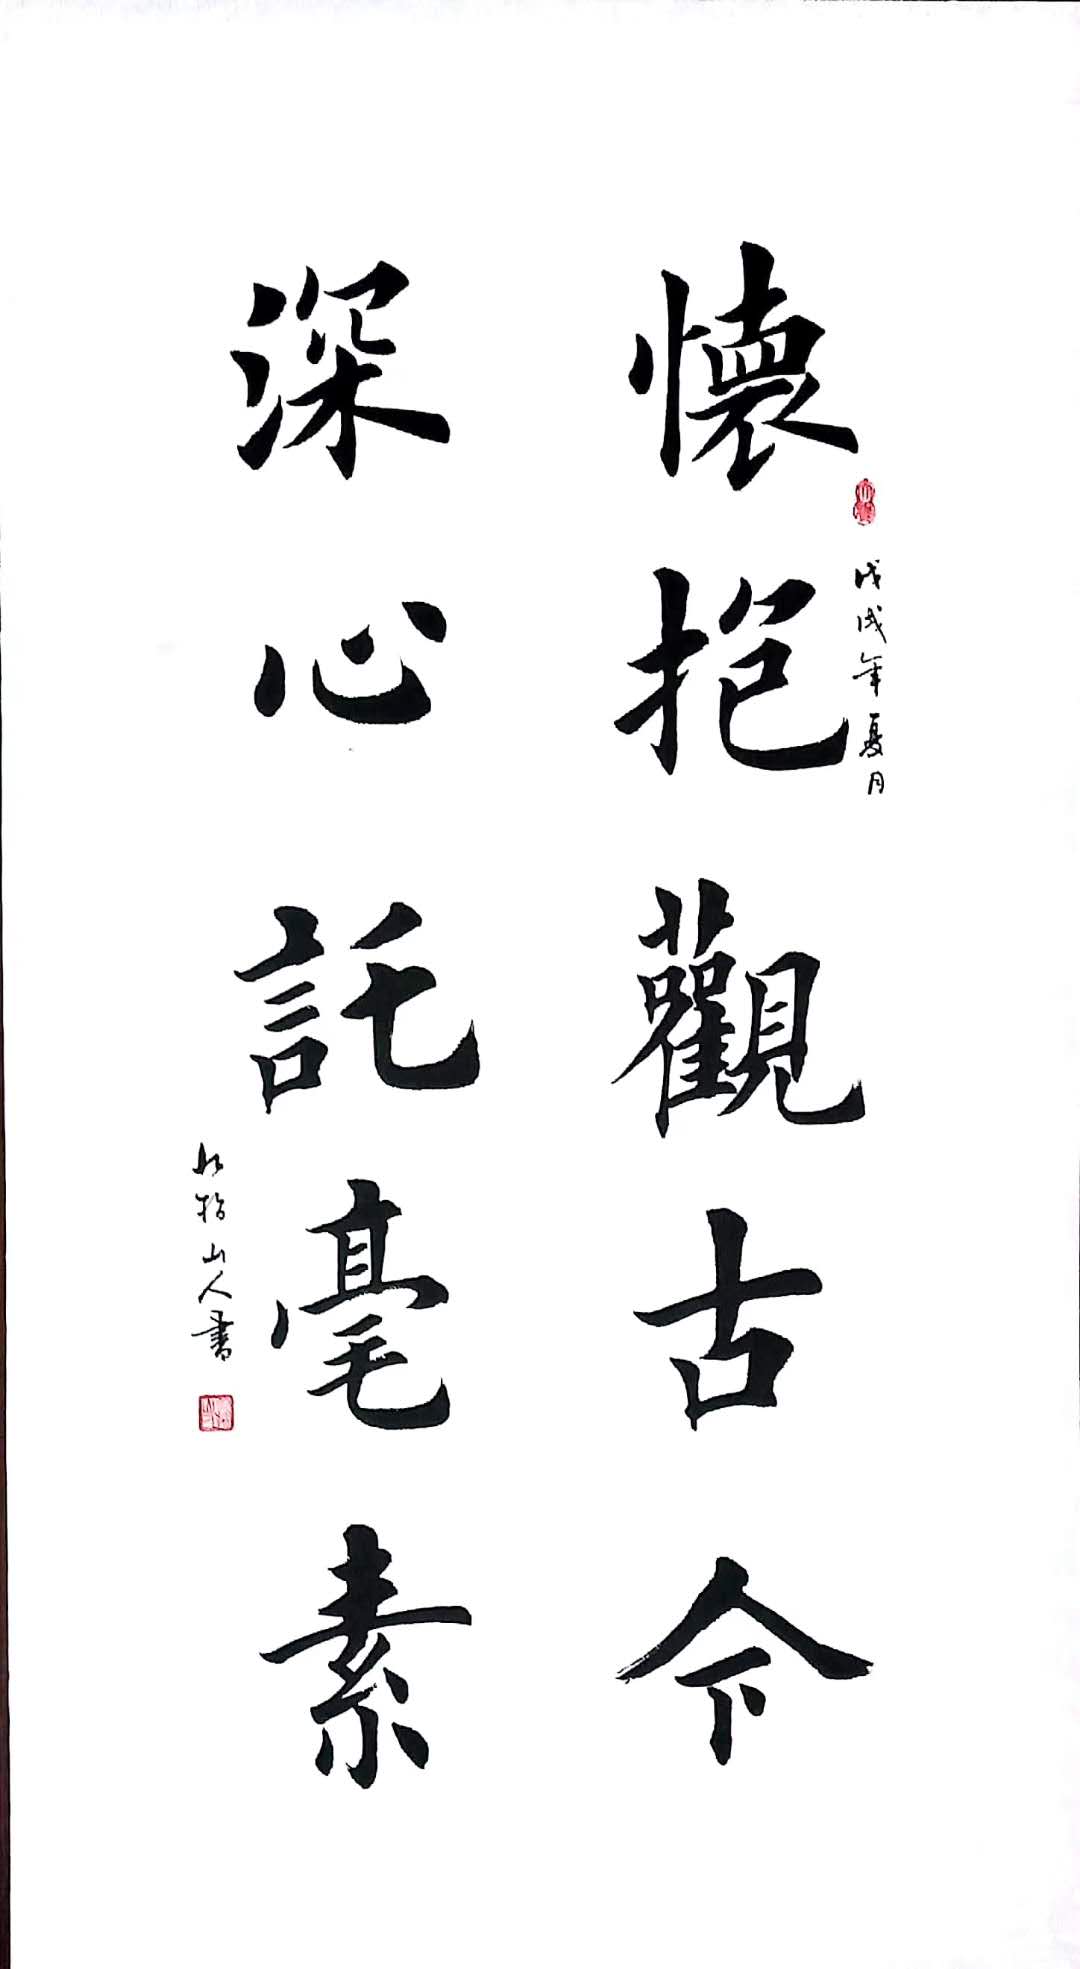 懷抱觀古今
戊戌年夏月
深心託毫素
山人書